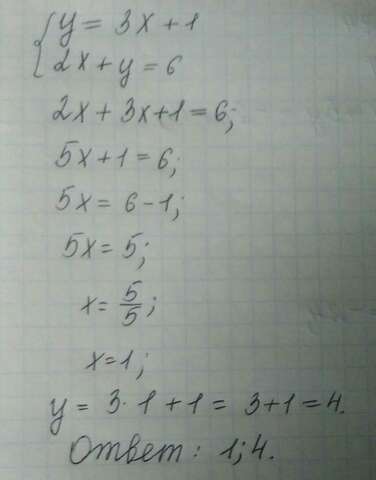 { y = 3x + 1
2x + y = 6
2x + 3x + 1 = 6;
5x + 1 = 6;
5x = 6 - 1;
5x = 5;
x = 5/5;
x = 1;
y = 3 · 1 + 1 = 3 + 1 = 4.
Ответ: 1; 4.